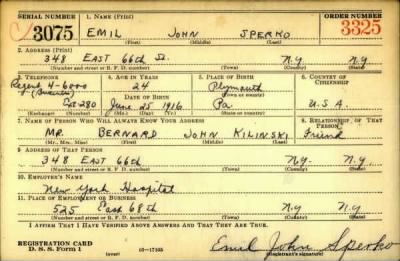 SERIAL NUMBER 1. NAME (Print) ORDER NUMBER
3075 EMIL JOHN SPERKO 3325
(First) (Middle) (Last)
2. ADDRESS (Print)
348 EAST 66th St. N.Y. N.Y.
(Number and street or R. F. D. number) (Town) (County) (State)
3. TELEPHONE 4. AGE IN YEARS 5. PLACE OF BIRTH 6. COUNTRY OF CITIZENSHIP
Regent 4-6000 24 Plymouth
(Town or county)
DATE OF BIRTH
Ext 280 June 25 1916 Pa. U.S.A.
(Exchange) (Number) (Mo.) (Day) (Yr.) (State or country)
7. NAME OF PERSON WHO WILL ALWAYS KNOW YOUR ADDRESS 8. RELATIONSHIP OF THAT PERSON
MR. BERNARD JOHN KILINSKI Friend
(Mr., Mrs., Miss) (First) (Middle) (Last)
9. ADDRESS OF THAT PERSON
348 EAST 66th N.Y. N.Y.
(Number and street or R. F. D. number) (Town) (County) (State)
10. EMPLOYER'S NAME
New York Hospital
11. PLACE OF EMPLOYMENT OR BUSINESS
525 East 68th N.Y. N.Y.
(Number and street or R. F. D. number) (Town) (County) (State)
I AFFIRM THAT I HAVE VERIFIED ABOVE ANSWERS AND THAT THEY ARE TRUE.
REGISTRATION CARD
D. S. S. Form 1 (over) 16—17105 Emil John Sperko
(Registrant's signature)